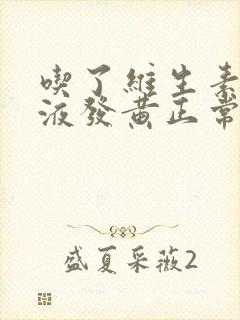 喫了維生素
液發黃正常
盛夏采薇2